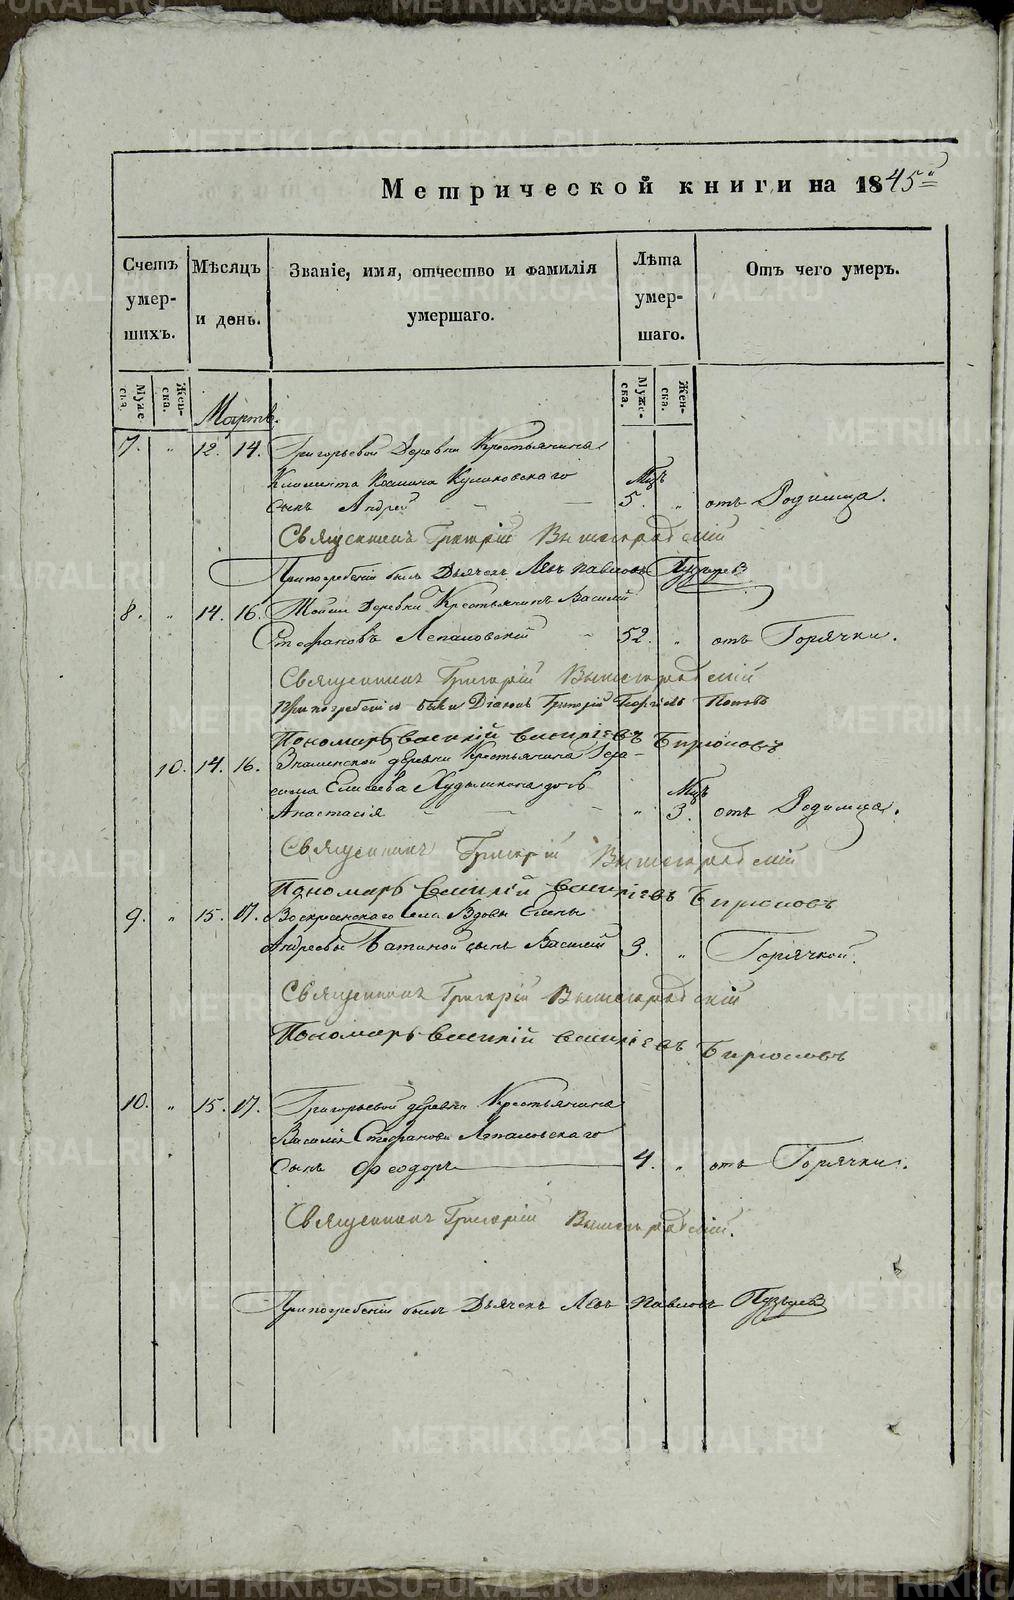 Метрической книги на 1845й
Счетъ умер-шихъ.
Мѣсяцъ и день.
Званіе, имя, отчество и фамилія умершаго.
Лѣта умер-шаго.
Отъ чего умеръ.
Мужес-ка.
Жен-ска.
Мужес-ка.
Жен-ска.
Мартъ.
7. " 12. 14. Григорьевой Деревни Крестьянина
Климента Козмина Кулаковскаго Мцъ
сынъ Андрей 5. " отъ Родимца.
Священникъ Григорій Вышегородскій
При погребеніи былъ Дьячекъ Левъ Павловъ Пузыревъ
8. " 14. 16. Тойже Деревни Крестьянинъ Василій
Стефановъ Лепаловскій 52. " отъ Горячки.
Священникъ Григорій Вышегородскій
При погребеніи были Діаконъ Григорій Георгіевъ Поповъ
Пономарь Василій Василіевъ Бирюковъ
10. 14. 16. Знаменской деревни Крестьянина Гера-
сима Елисеева Худышкина дочь Мцъ
Анастасія " 3. отъ Родимца.
Священникъ Григорій Вышегородскій
Пономарь Василій Василіевъ Бирюковъ
9. " 15. 17. Воскресенскаго Села Вдовы Елены
Андреевы Батиной сынъ Василій 3. " Горячкой.
Священникъ Григорій Вышегородскій
Пономарь Василій Василіевъ Бирюковъ
10. " 15. 17. Григорьевой деревни Крестьянина
Василія Стефанова Лепаловскаго
Сынъ Феодоръ 4. " отъ Горячки.
Священникъ Григорій Вышегородскій.
При погребеніи былъ Дьячекъ Левъ Павловъ Пузыревъ
METRIKI.GASO-URAL.RU